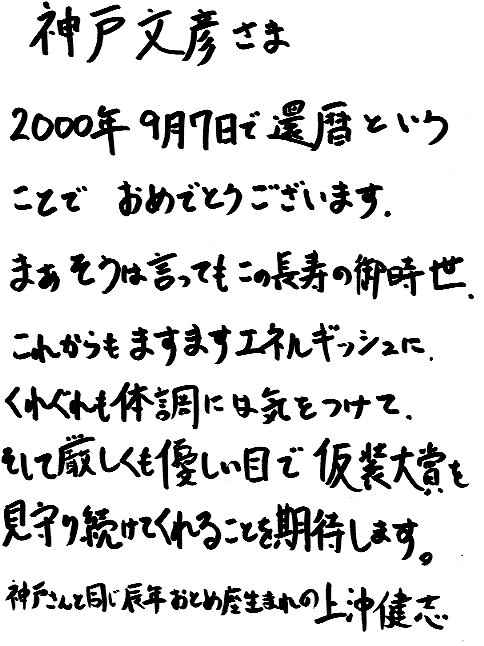 神戸文彦さま
2000年9月7日で還暦という
ことで おめでとうございます.
まあそうは言ってもこの長寿の御時世.
これからもますますエネルギッシュに.
くれぐれも体調には気をつけて.
そして厳しくも優しい目で仮装大賞を
見守り続けてくれることを期待します。
神戸さんと同じ辰年おとめ座生まれの上沖健志